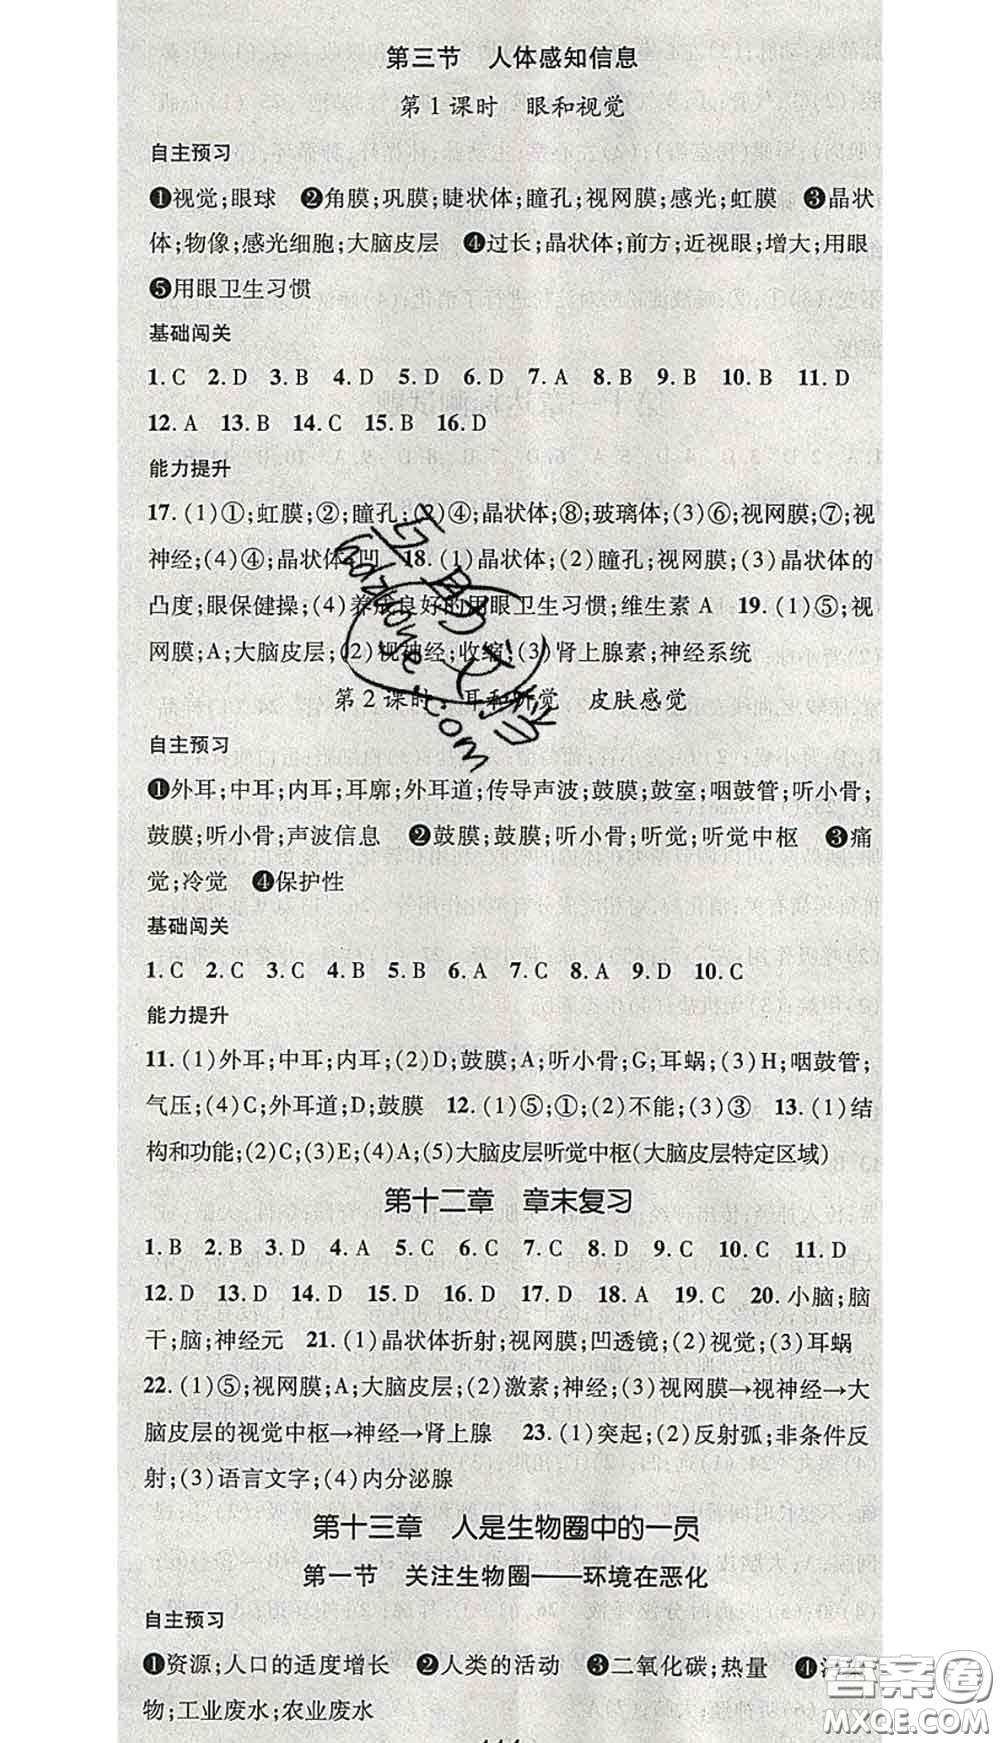 第三节　人体感知信息
第 1 课时　眼和视觉
自主预习
❶视觉;眼球　❷角膜;巩膜;睫状体;瞳孔;视网膜;感光;虹膜　❸晶状
体;物像;感光细胞;大脑皮层　❹过长;晶状体;前方;近视眼;增大;用眼
❺用眼卫生习惯
基础闯关
1. C　2. D　3. B　4. D　5. D　6. D　7. A　8. B　9. B　10. B　11. D
12. A　13. B　14. C　15. B　16. D
能力提升
17. (1)①;虹膜;②;瞳孔;(2)④;晶状体;⑧;玻璃体;(3)⑥;视网膜;⑦;视
神经;(4)④;晶状体;凹　18. (1)晶状体;(2)瞳孔;视网膜;(3)晶状体的
凸度;眼保健操;(4)养成良好的用眼卫生习惯;维生素 A　19. (1)⑤;视
网膜;A;大脑皮层;(2)视神经;收缩;(3)肾上腺素;神经系统
第 2 课时　耳和听觉　皮肤感觉
自主预习
❶外耳;中耳;内耳;耳廓;外耳道;传导声波;鼓膜;鼓室;咽鼓管;听小骨;
鼓膜;听小骨;声波信息　❷鼓膜;鼓膜;听小骨;听觉;听觉中枢　❸痛
觉;冷觉　❹保护性
基础闯关
1. C　2. C　3. C　4. B　5. B　6. A　7. C　8. A　9. D　10. C
能力提升
11. (1)外耳;中耳;内耳;(2)D;鼓膜;A;听小骨;G;耳蜗;(3)H;咽鼓管;
气压;(4)C;外耳道;D;鼓膜　12. (1)⑤;①;(2)不能;(3)③　13. (1)结
构和功能;(2)C;(3)E;(4)A;(5)大脑皮层听觉中枢(大脑皮层特定区域)
第十二章　章末复习
1. B　2. B　3. D　4. A　5. C　6. C　7. C　8. D　9. C　10. C　11. D
12. D　13. D　14. D　15. D　16. D　17. D　18. A　19. C　20. 小脑;脑
干;脑;神经元　21. (1)晶状体折射;视网膜;凹透镜;(2)视觉;(3)耳蜗
22. (1)⑤;视网膜;A;大脑皮层;(2)激素;神经;(3)视网膜→视神经→大
脑皮层的视觉中枢→神经→肾上腺　23. (1)突起;(2)反射弧;非条件反
射;(3)语言文字;(4)内分泌腺
第十三章　人是生物圈中的一员
第一节　关注生物圈——环境在恶化
自主预习
❶资源;人口的适度增长　❷人类的活动　❸二氧化碳;热量　❹污染
物;工业废水;农业废水
答案圈
MXQE.COM